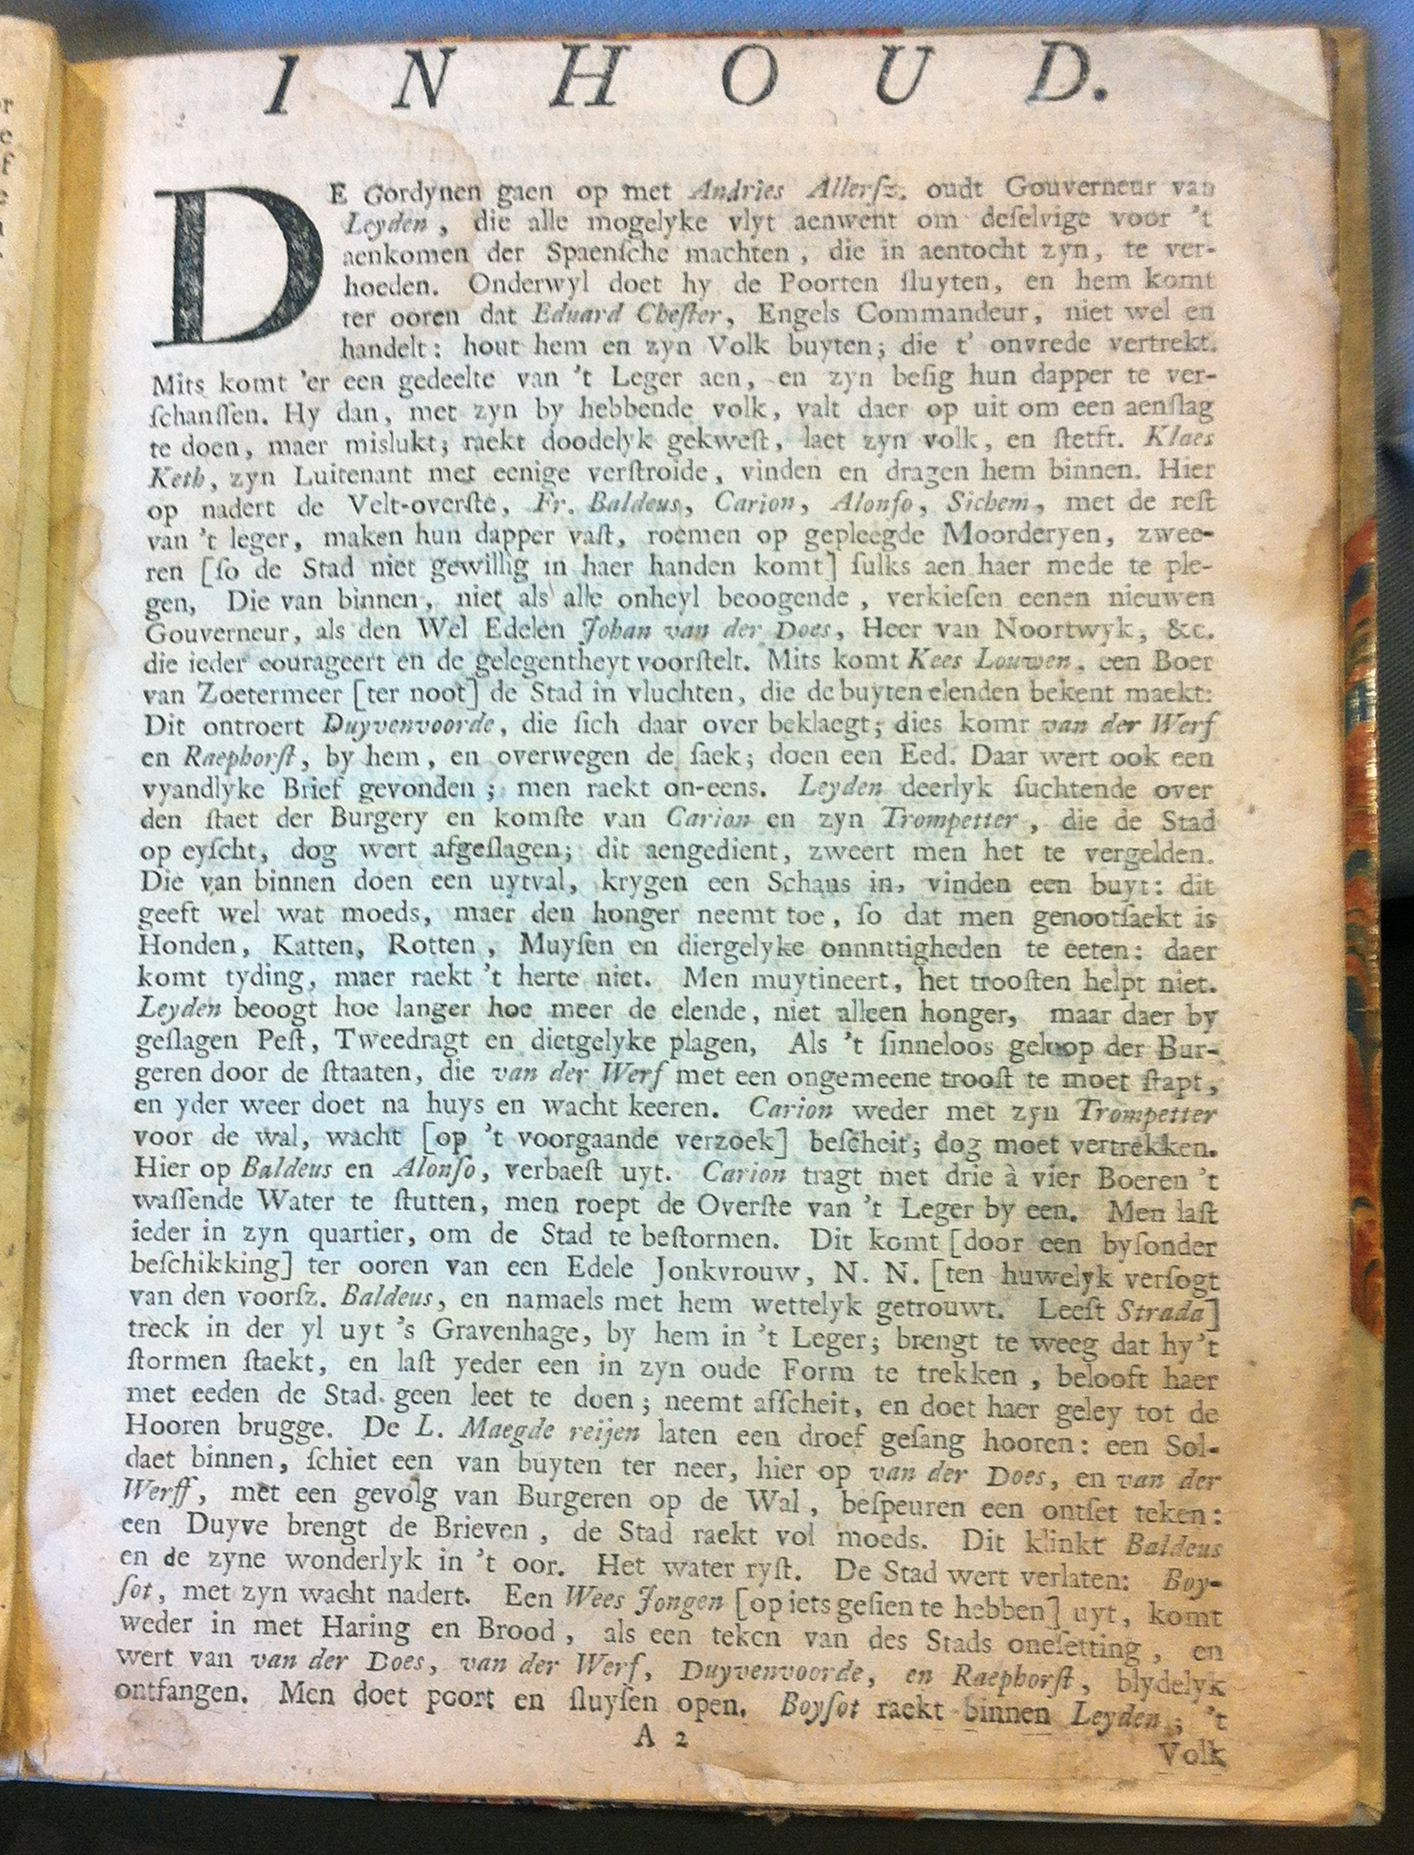 INHOUD.
DE Gordynen gaen op met Andries Allerſz. oudt Gouverneur van
Leyden, die alle mogelyke vlyt aenwent om deſelvige voor 't
aenkomen der Spaenſche machten, die in aentocht zyn, te ver-
hoeden. Onderwyl doet hy de Poorten ſluyten, en hem komt
ter ooren dat Eduard Cheſter, Engels Commandeur, niet wel en
handelt: hout hem en zyn Volk buyten; die t' onvrede vertrekt.
Mits komt 'er een gedeelte van 't Leger aen, en zyn beſig hun dapper te ver-
ſchanſſen. Hy dan, met zyn by hebbende volk, valt daer op uit om een aenſlag
te doen, maer mislukt; raekt doodelyk gekweſt, laet zyn volk, en ſtetft. Klaes
Keth, zyn Luitenant met eenige verſtroide, vinden en dragen hem binnen. Hier
op nadert de Velt-overſte, Fr. Baldeus, Carion, Alonſo, Sichem, met de reſt
van 't leger, maken hun dapper vaſt, roemen op gepleegde Moorderyen, zwee-
ren [ſo de Stad niet gewillig in haer handen komt] ſulks aen haer mede te ple-
gen, Die van binnen, niet als alle onheyl beoogende, verkieſen eenen nieuwen
Gouverneur, als den Wel Edelen Johan van der Does, Heer van Noortwyk, &c.
die ieder courageert en de gelegentheyt voorſtelt. Mits komt Kees Louwen, een Boer
van Zoetermeer [ter noot] de Stad in vluchten, die de buyten elenden bekent maekt:
Dit ontroert Duyvenvoorde, die ſich daar over beklaegt; dies komt van der Werf
en Raephorſt, by hem, en overwegen de ſaek; doen een Eed. Daar wert ook een
vyandlyke Brief gevonden; men raekt on-eens. Leyden deerlyk ſuchtende over
den ſtaet der Burgery en komſte van Carion en zyn Trompetter, die de Stad
op eyſcht, dog wert afgeſlagen; dit aengedient, zweert men het te vergelden.
Die van binnen doen een uytval, krygen een Schans in, vinden een buyt: dit
geeft wel wat moeds, maer den honger neemt toe, ſo dat men genootſaekt is
Honden, Katten, Rotten, Muyſen en diergelyke onnnttigheden te eeten: daer
komt tyding, maer raekt 't herte niet. Men muytineert, het trooſten helpt niet.
Leyden beoogt hoe langer hoe meer de elende, niet alleen honger, maar daer by
geſlagen Peſt, Tweedragt en dietgelyke plagen, Als 't ſinneloos geloop der Bur-
geren door de ſttaaten, die van der Werf met een ongemeene trooſt te moet ſtapt,
en yder weer doet na huys en wacht keeren. Carion weder met zyn Trompetter
voor de wal, wacht [op 't voorgaande verzoek] beſcheit; dog moet vertrekken.
Hier op Baldeus en Alonſo, verbaeſt uyt. Carion tragt met drie à vier Boeren 't
waſſende Water te ſtutten, men roept de Overſte van 't Leger by een. Men laſt
ieder in zyn quartier, om de Stad te beſtormen. Dit komt [door een byſonder
beſchikking] ter ooren van een Edele Jonkvrouw, N. N. [ten huwelyk verſogt
van den voorſz. Baldeus, en namaels met hem wettelyk getrouwt. Leeſt Strada]
treck in der yl uyt 's Gravenhage, by hem in 't Leger; brengt te weeg dat hy 't
ſtormen ſtaekt, en laſt yeder een in zyn oude Form te trekken, belooft haer
met eeden de Stad geen leet te doen; neemt afſcheit, en doet haer geley tot de
Hooren brugge. De L. Maegde reijen laten een droef geſang hooren: een Sol-
daet binnen, ſchiet een van buyten ter neer, hier op van der Does, en van der
Werff, met een gevolg van Burgeren op de Wal, beſpeuren een ontſet teken:
een Duyve brengt de Brieven, de Stad raekt vol moeds. Dit klinkt Baldeus
en de zyne wonderlyk in 't oor. Het water ryſt. De Stad wert verlaten: Boy-
ſot, met zyn wacht nadert. Een Wees Jongen [op iets geſien te hebben] uyt, komt
weder in met Haring en Brood, als een teken van des Stads oneſetting, en
wert van van der Does, van der Werf, Duyvenvoorde, en Raephorſt, blydelyk
ontfangen. Men doet poort en ſluyſen open. Boyſot raekt binnen Leyden; 't
A 2
Volk